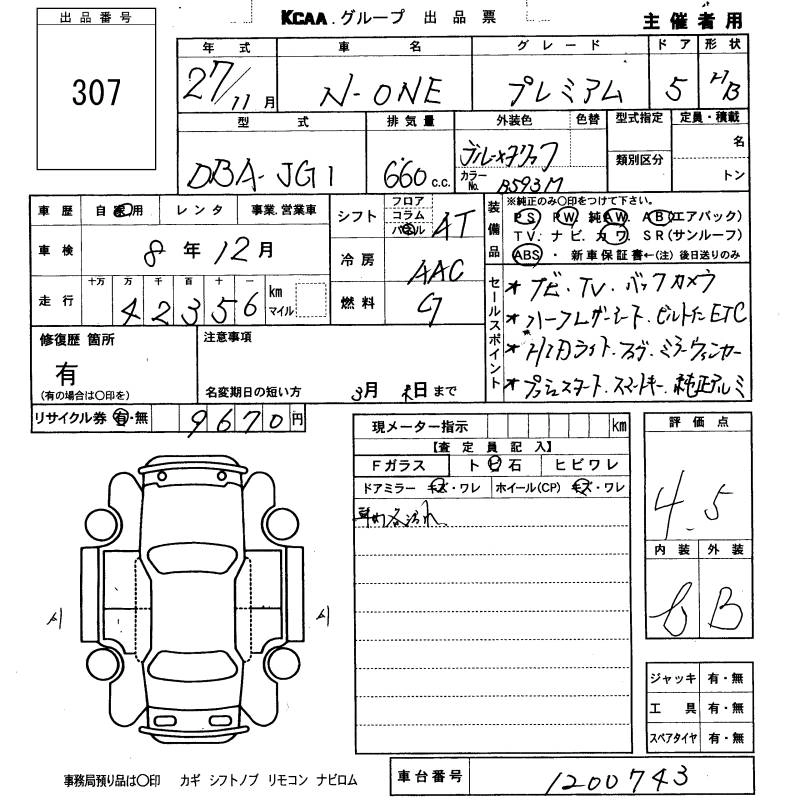 出品番号
307
KCAA グループ 出品票
主催者用
年式 車名 グレード ドア 形状
27/11月 N-ONE プレミアム 5 HB
型式 排気量 外装色 色替 型式指定 定員・積載
DBA-JG1 660 c.c. カラーNo. B593M 類別区分 名
トン
車歴 自家用 レンタ 事業.営業車
シフト フロア コラム AT
車検 8年12月
冷房 AAC
走行 十万 万 千 百 十 一 km マイル
4 2 3 5 6
燃料 G
装備品 ※純正のみ〇印をつけて下さい。
PS PW 純AW. AB(エアバック)
TV. ナビ. カワ. SR(サンルーフ)
ABS ・ 新車保証書←(注) 後日送りのみ
セールスポイント
★ナビ・TV・バックカメラ
★ハーフレザーシート.ビルトインETC
★HIDライト.フォグ.ミラーウィンカー
★プッシュスタート.スマートキー.純正アルミ
修復歴 箇所
有
(有の場合は〇印を)
注意事項
名変期日の短い方 3月末日まで
リサイクル券 有・無 9670円
現メーター指示 km
【査定員記入】
Fガラス トビ石 ヒビワレ
ドアミラー キズ・ワレ ホイール(CP) キズ・ワレ
評価点
4.5
内装 外装
B
ジャッキ 有・無
工具 有・無
スペアタイヤ 有・無
事務局預り品は〇印 カギ シフトノブ リモコン ナビロム
車台番号 1200743